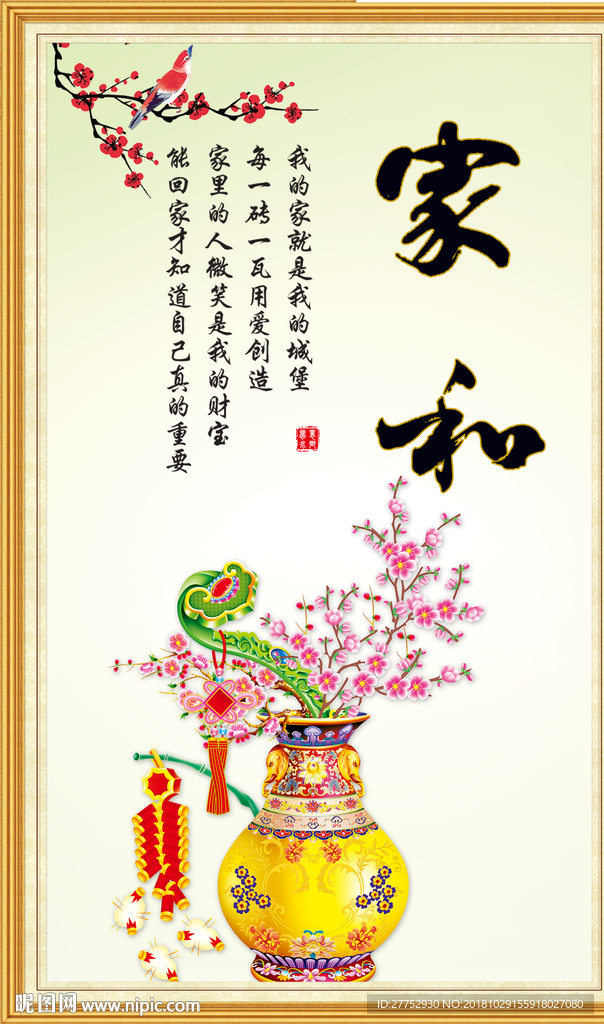 家和
我的家就是我的城堡
每一砖一瓦用爱创造
家里的人微笑是我的财宝
能回家才知道自己真的重要
昵图网 www.nipic.com
ID:27752930 NO:20181029155918027080